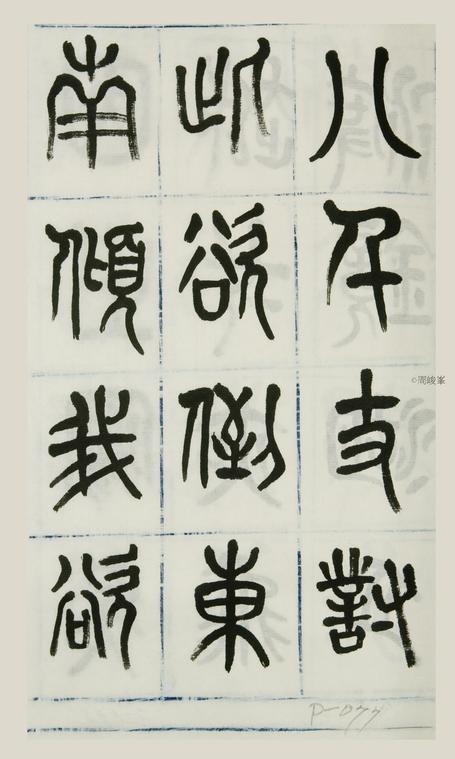 八千丈對
此欲倒東
南傾我欲
©周峻峯
P-077